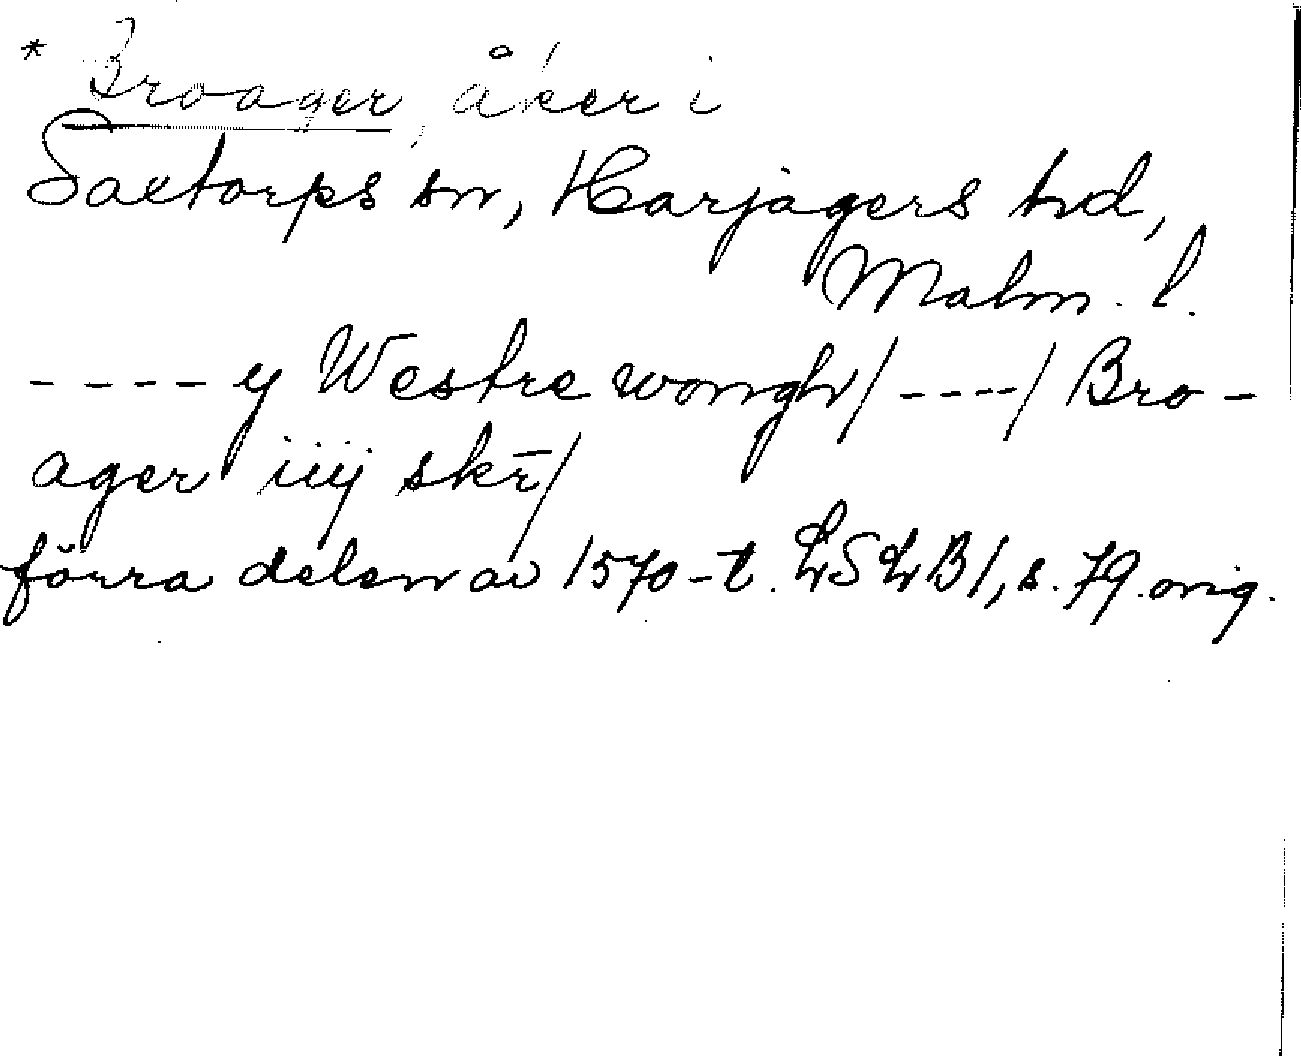 * Broager, åker i
Saxtorps sn, Harjagers hd,
Malm. l.
---- y Westre wongh/ ----/ Bro-
ager iiij skr̄/
förra delen av 1570-t. LSLB1, s. 79. orig.